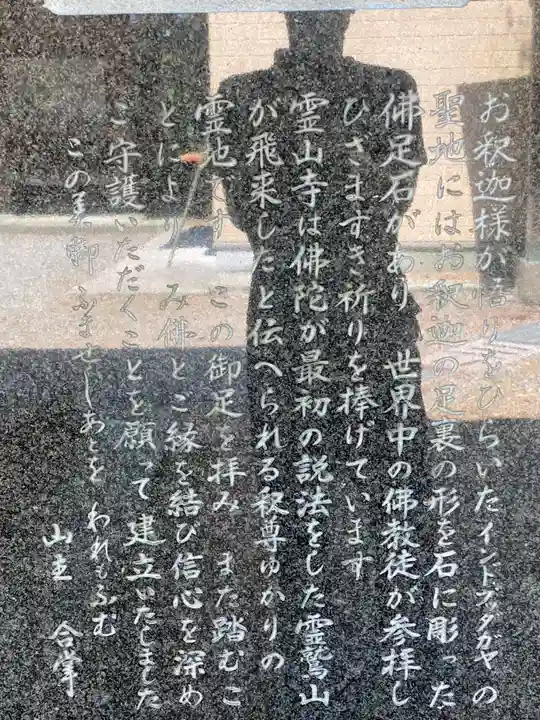 お釈迦様が悟りをひらいたインドブッタガヤの
聖地にはお釈迦の足裏の形を石に彫った
佛足石があり 世界中の佛教徒が参拝し
ひざまずき祈りを捧げています
霊山寺は佛陀が最初の説法をした霊鷲山
が飛来したと伝へられる釈尊ゆかりの
霊地です この御足を拝み また踏むこ
とにより み佛とご縁を結び信心を深め
ご守護いただくことを願って建立いたしました
この 御 ふませしあとを われもふむ
山主 合掌